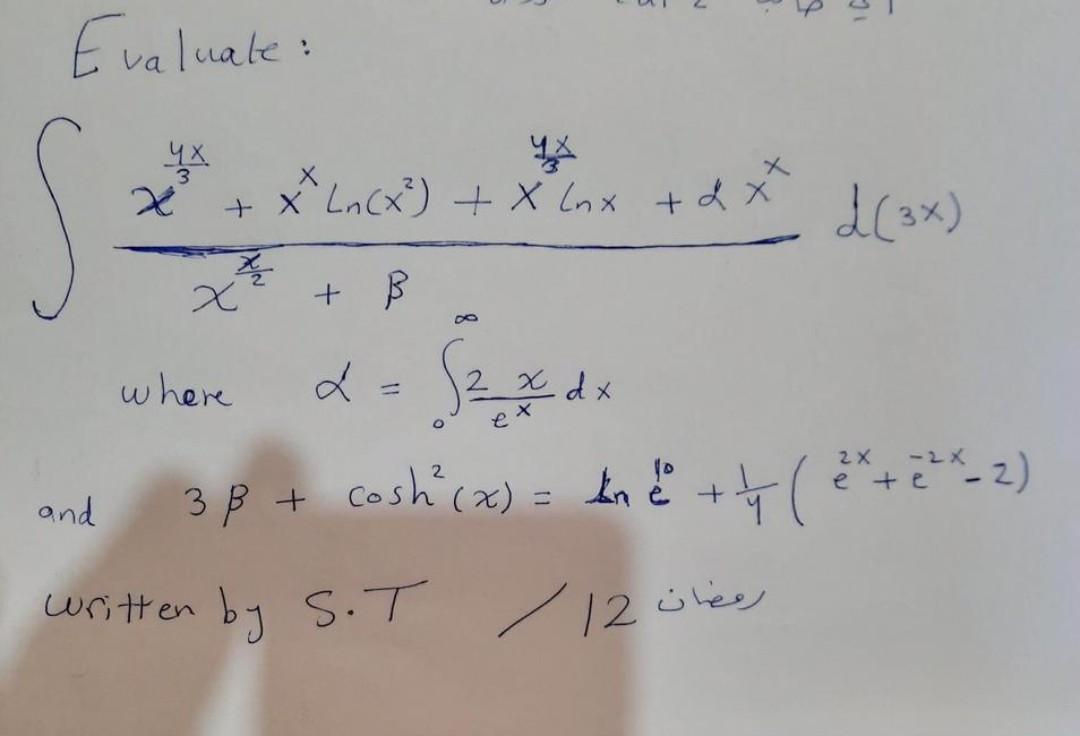 Evaluate:
∫ (x^(4x/3) + x^x Ln(x²) + x^(4x/3) Lnx + α x^x) / (x^(x/2) + β) d(3x)
where α = ∫₀^∞ 2x/e^x dx
and 3β + cosh²(x) = Ln e^10 + 1/4 (e^(2x) + e^(-2x) - 2)
written by S.T / 12 رمضان